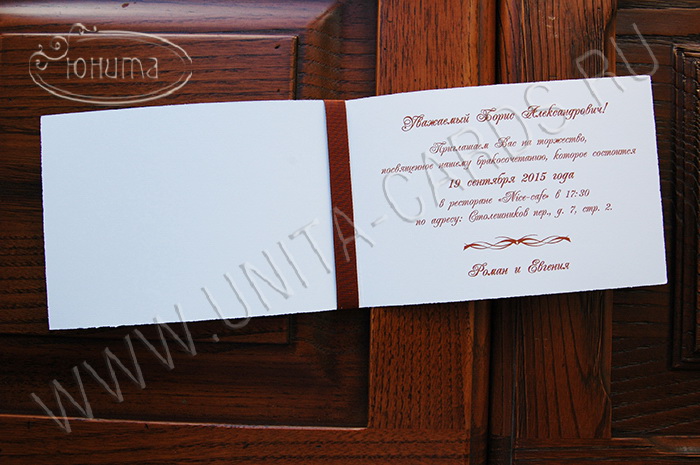 Юнита
Уважаемый Борис Александрович!
Приглашаем Вас на торжество,
посвященное нашему бракосочетанию, которое состоится
19 сентября 2015 года
в ресторане «Nice-cafe» в 17:30
по адресу: Столешников пер., д. 7, стр. 2.
Роман и Евгения
WWW.UNITA-CARDS.RU